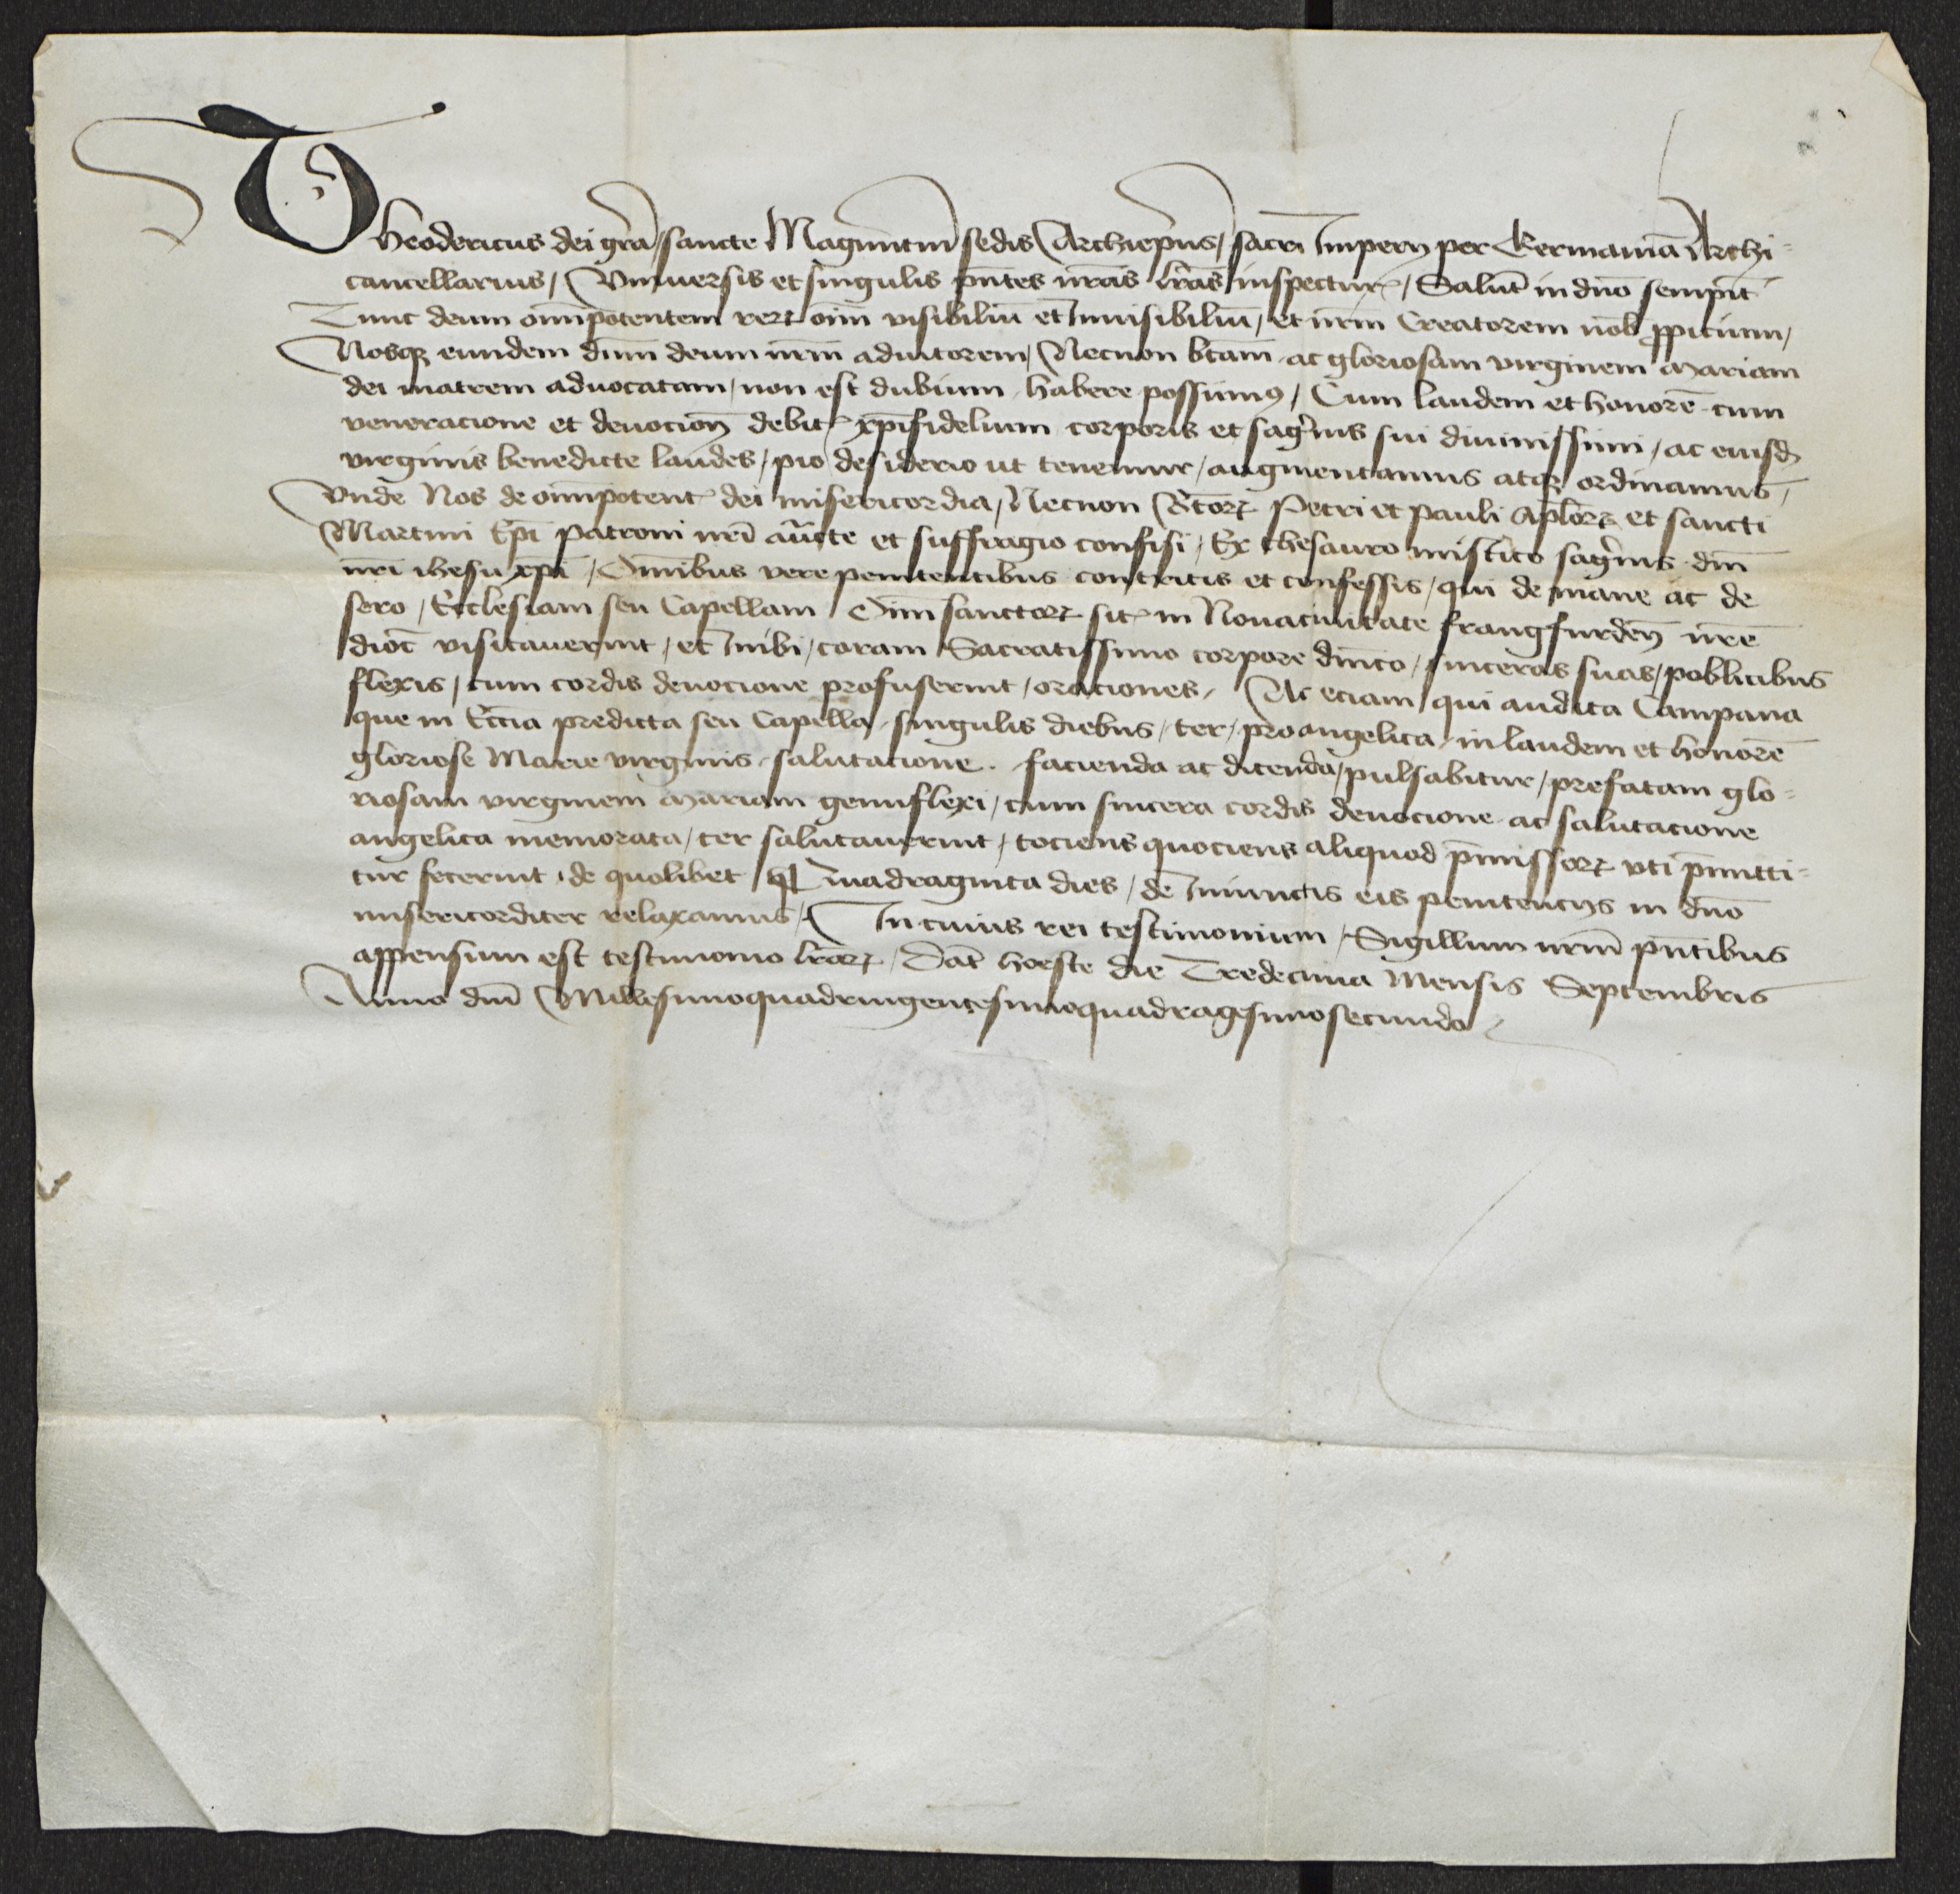 Theodericus dei gr̄a sancte Magūntin̄ sedis Archiep̄us, sacri Imperij per Germaniā Archi-
cancellarius, Vniuersis et singulis pn̄tes nr̄as lr̄as inspectur̄, Salut̄ in dn̄o sempit̄
Tunc deum omnipotentem rerꝝ oīm visibiliū et Inuisibiliū, et nr̄m Creatorem nob̄ ꝓpicium,
Nosqꝫ eundem dn̄m deum nr̄m adiutorem, Necnon btām ac gloriosam virginem mariam
dei matrem aduocatam, non est dubium habere possumꝯ, Cum laudem et honorē cum
veneracione et deuocion̄ debit̄ xp̄ifidelium corporis et sag̃nis sui diuinissimi, ac eiusd̄
virginis benedicte laudes, pio desiderio ut tenemur, augmentamus atqꝫ ordinamus,
Vnde Nos de omnipotent̄ dei misericordia, Necnon Bt̄orꝝ Petri et Pauli Apl̄orꝝ et sancti
Martini Ep̄i Patroni nr̄i auc̄te et suffragio confisi, Ex thesauro mistico sag̃nis dn̄i
nr̄i ihesu xp̄i, Omnibus vere penitentibus contritis et confessis, qui de mane ac de
sero, Ecclesiam seu Capellam Oīm sanctorꝝ sit̄ in Nouaciuitate frangfurden̄ nr̄e
dioc̄ visitauerint, et Inibi, coram Sacratissimo corpore dn̄ico, sinceras suas, poblicibus
flexis, cum cordis deuocione profuserint, oraciones, Ac eciam qui audita Campana
que in Ecc̄ia predicta seu Capella, singulis diebus, ter, pro angelica, in laudem et honorē
gloriose Marie virginis, salutacione. facienda ac dicenda, pulsabitur, prefatam glo-
riosam virginem mariam genuflexi, cum sincera cordis deuocione ac salutacione
angelica memorata, ter salutauerint, tociens quociens aliquod p̄missorꝝ vti p̄mitti-
tur fecerint, de quolibet Quadraginta dies, de Iniunctis eis penitencijs in dn̄o
misericorditer relaxamus, In cuius rei testimonium, Sigillum nr̄m pn̄tibus
appensum est testimonio lr̄arꝝ, Dat̄ hoeste die Tredecima Mensis Septembris
Anno dn̄i Millesimoquadringentesimoquadragesimosecundo